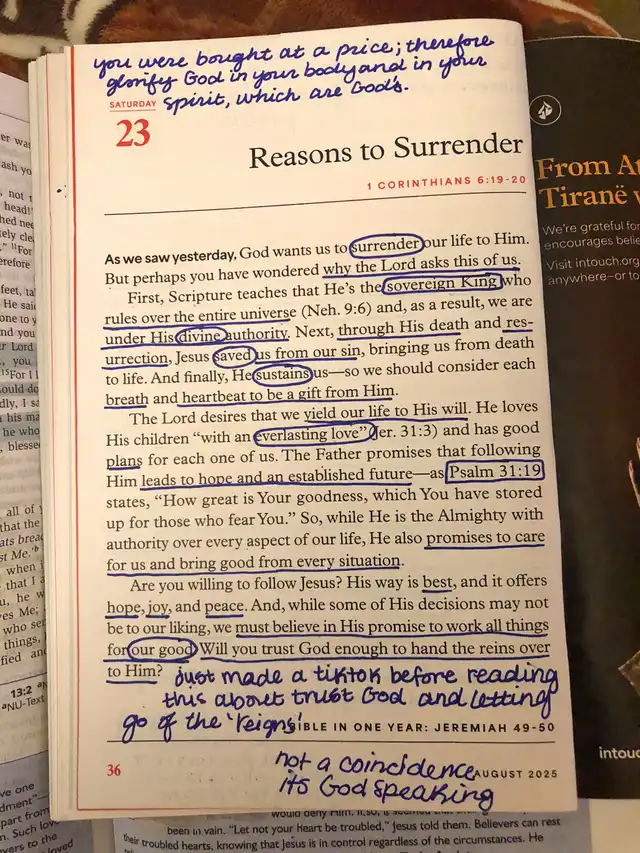 you were bought at a price; therefore
glorify God in your body and in your
spirit, which are God's.
SATURDAY
23
Reasons to Surrender
1 CORINTHIANS 6:19-20
As we saw yesterday, God wants us to surrender our life to Him.
But perhaps you have wondered why the Lord asks this of us.
First, Scripture teaches that He's the sovereign King who
rules over the entire universe (Neh. 9:6) and, as a result, we are
under His divine authority. Next, through His death and res-
urrection, Jesus saved us from our sin, bringing us from death
to life. And finally, He sustains us—so we should consider each
breath and heartbeat to be a gift from Him.
The Lord desires that we yield our life to His will. He loves
His children "with an everlasting love" (Jer. 31:3) and has good
plans for each one of us. The Father promises that following
Him leads to hope and an established future—as Psalm 31:19
states, "How great is Your goodness, which You have stored
up for those who fear You." So, while He is the Almighty with
authority over every aspect of our life, He also promises to care
for us and bring good from every situation.
Are you willing to follow Jesus? His way is best, and it offers
hope, joy, and peace. And, while some of His decisions may not
be to our liking, we must believe in His promise to work all things
for our good. Will you trust God enough to hand the reins over
to Him?
Just made a tiktok before reading
this about trust God and letting
go of the 'reigns'
BIBLE IN ONE YEAR: JEREMIAH 49-50
not a coincidence
its God speaking
36
AUGUST 2025
From At
Tiranë v
We're grateful for
encourages belie
Visit intouch.org
anywhere—or to
intouc
13:2
NU-Text
would deny Him.
been in vain. "Let not your heart be troubled," Jesus told them. Believers can rest
their troubled hearts, knowing that Jesus is in control regardless of the circumstances. He